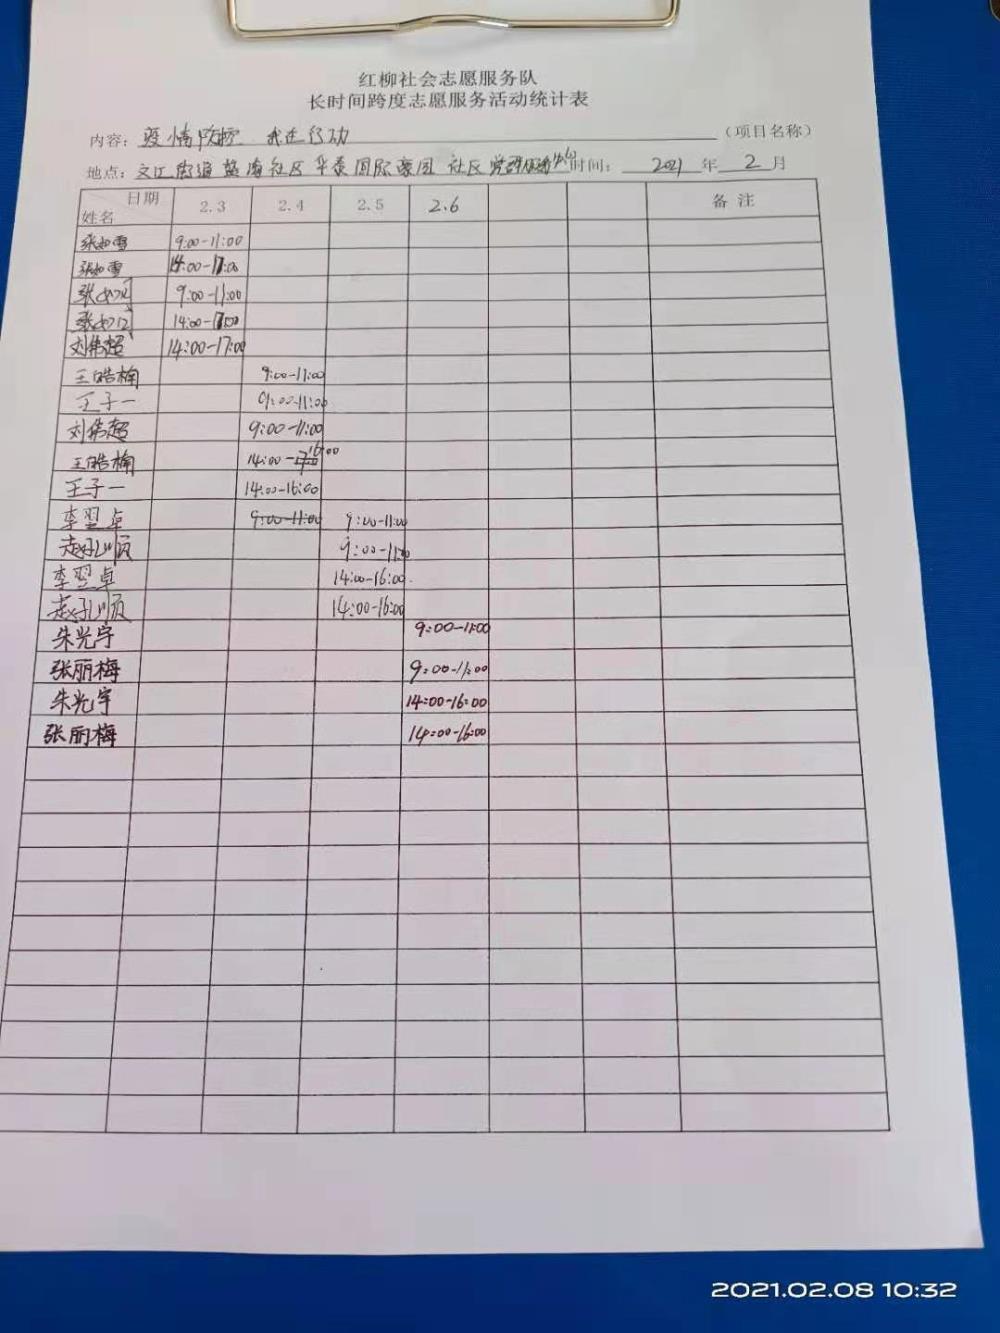 红柳社会志愿服务队
长时间跨度志愿服务活动统计表
内容：疫情防控 我在行动（项目名称）
地点：文江街道盐海社区华泰国际豪园 社区党群服务 时间：2021年2月
日期 姓名 2.3 2.4 2.5 2.6 备注
张如雪 9:00-11:00
张如雪 14:00-17:00
张 9:00-11:00
张 14:00-17:00
刘伟超 14:00-17:00
王皓楠 9:00-11:00
王子一 9:00-11:00
刘伟超 9:00-11:00
王皓楠 14:00-16:00
王子一 14:00-16:00
李翌卓 9:00-11:00 9:00-11:00
9:00-11:00
李翌卓 14:00-16:00
14:00-16:00
朱光宇 9:00-11:00
张丽梅 9:00-11:00
朱光宇 14:00-16:00
张丽梅 14:00-16:00
2021.02.08 10:32